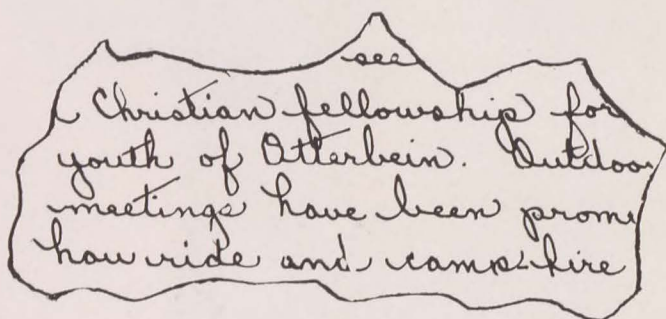 see
Christian fellowship for
youth of Otterbein. Outdoor
meetings have been prom
hay ride and camp-fire